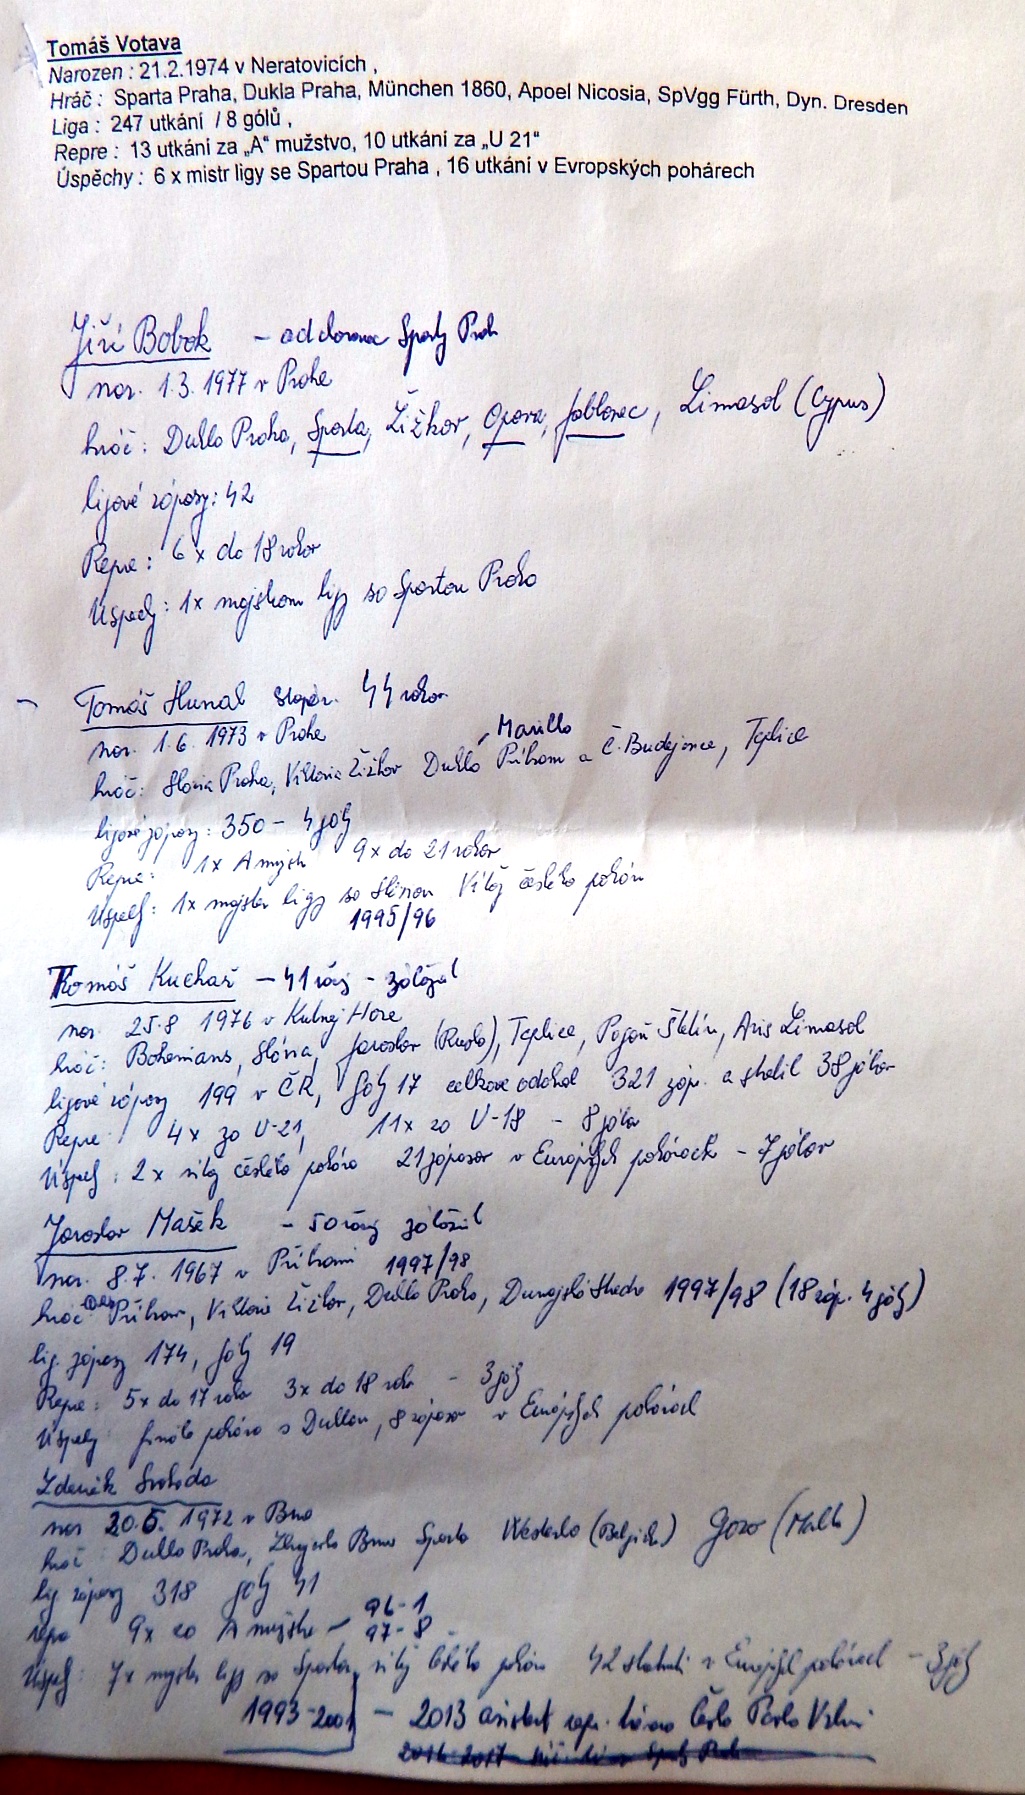 Tomáš Votava
Narozen : 21.2.1974 v Neratovicích ,
Hráč : Sparta Praha, Dukla Praha, München 1860, Apoel Nicosia, SpVgg Fürth, Dyn. Dresden
Liga : 247 utkání / 8 gólů ,
Repre : 13 utkání za „A“ mužstvo, 10 utkání za „U 21“
Úspěchy : 6 x mistr ligy se Spartou Praha , 16 utkání v Evropských pohárech
Jiří Bobok – odchovanec Sparty Praha
nar. 1.3. 1977 v Prahe
hráč: Dukla Praha, Sparta, Žižkov, Opava, Jablonec, Limasol (Cyprus)
ligové zápasy: 42
Repre: 6 x do 18 rokov
Úspechy: 1x majstrom ligy so Spartou Praha
Tomáš Hunal stopér 44 rokov
nar. 1.6. 1973 v Prahe
hráč: Slavia Praha, Viktoria Žižkov Dukla, Marilla Příbram a Č. Budejovice, Teplice
ligové zápasy: 350 – 4 góly
Repre: 1x A mužstv 9x do 21 rokov
Úspechy: 1x majster ligy so Slaviou Víťaz českého pohára
1995/96
Tomáš Kuchař – 41 ročný – záložník
nar. 25.8 1976 v Kutnej Hore
hráč: Bohemians, Slávia, Jaroslav (Rusko), Teplice, Pogoň Štetín, Aris Limasol
ligové zápasy 199 v ČR, góly 17 celkove odohral 321 záp. a strelil 38 gólov
Repre: 4x za U-21, 11x za U-18 – 8 gólov
Úspechy: 2x víťaz českého pohára 21 zápasov v Európskych pohároch – 7 gólov
Jaroslav Mašek – 50 ročný záložník
nar. 8.7. 1967 v Příbrami 1997/98
hráč Příbram, Viktoria Žižkov, Dukla Praha, Dunajská Streda 1997/98 (18 záp. 4 góly)
lig. zápasy 174, góly 19
Repre: 5x do 17 rokov 3x do 18 rokov – 3 góly
Úspechy finále pohára s Duklou, 8 zápasov v Európskych pohároch
Zdeněk Svoboda
nar 20.5. 1972 v Brno
hráč Dukla Praha, Zbrojovka Brno Sparta Westerlo (Belgicko) Gozo (Malta)
lig. zápasy 318 góly 41
repre 9x za A mužstvo – 96-1
97-8
Úspechy: 7x majster ligy so Spartou, víťaz českého pohára 42 v Európskych pohároch – 3 góly
1993-2001 – 2013 asistent repr. trénera Česka Pavla Vrbu